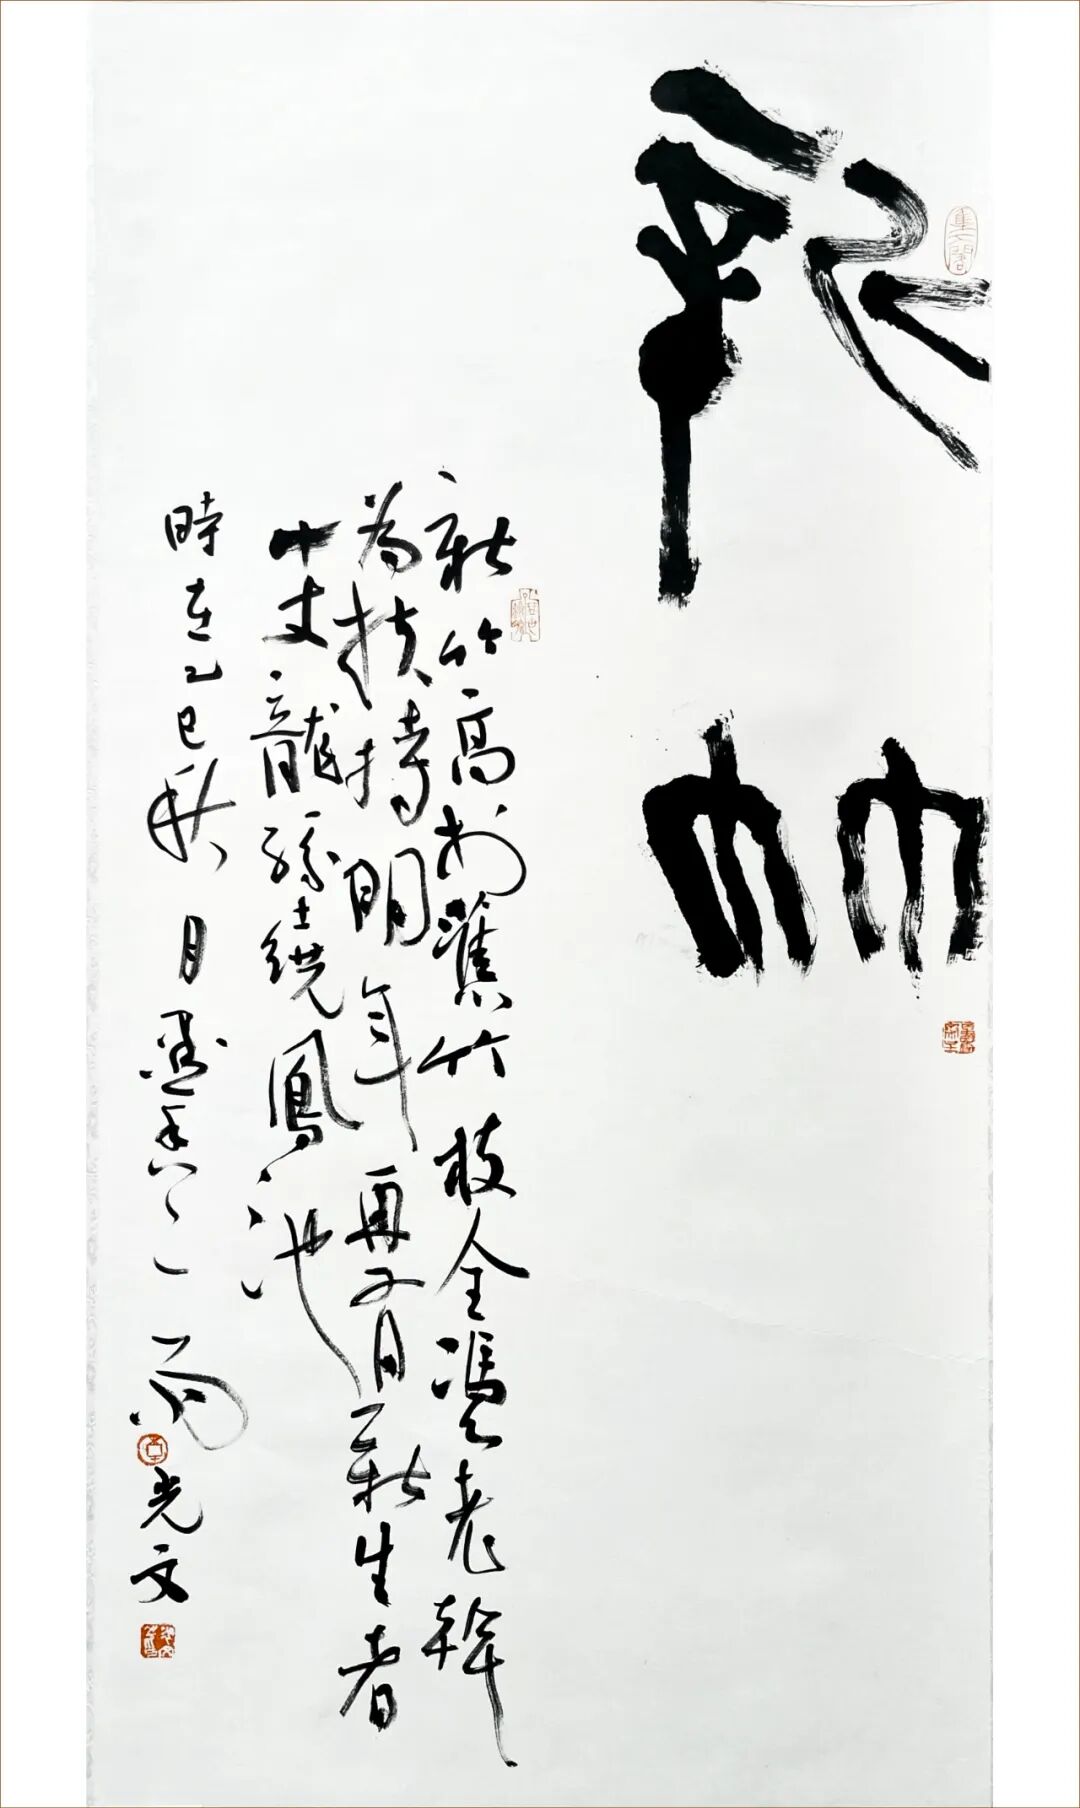 新竹
新竹高於舊竹枝全憑老幹
為扶持明年再有新生者
十丈龍孫繞鳳池
時在乙巳秋月墨香 光文